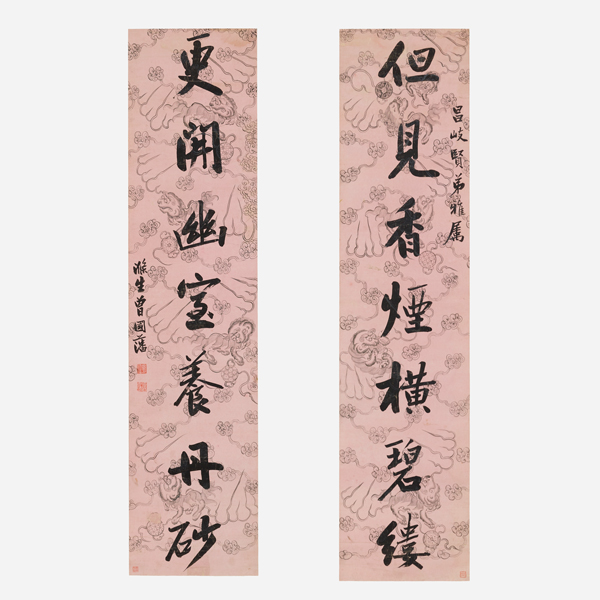 但見香煙橫碧縷
昌岐賢弟雅屬
更開幽室養丹砂
滌生曾國藩